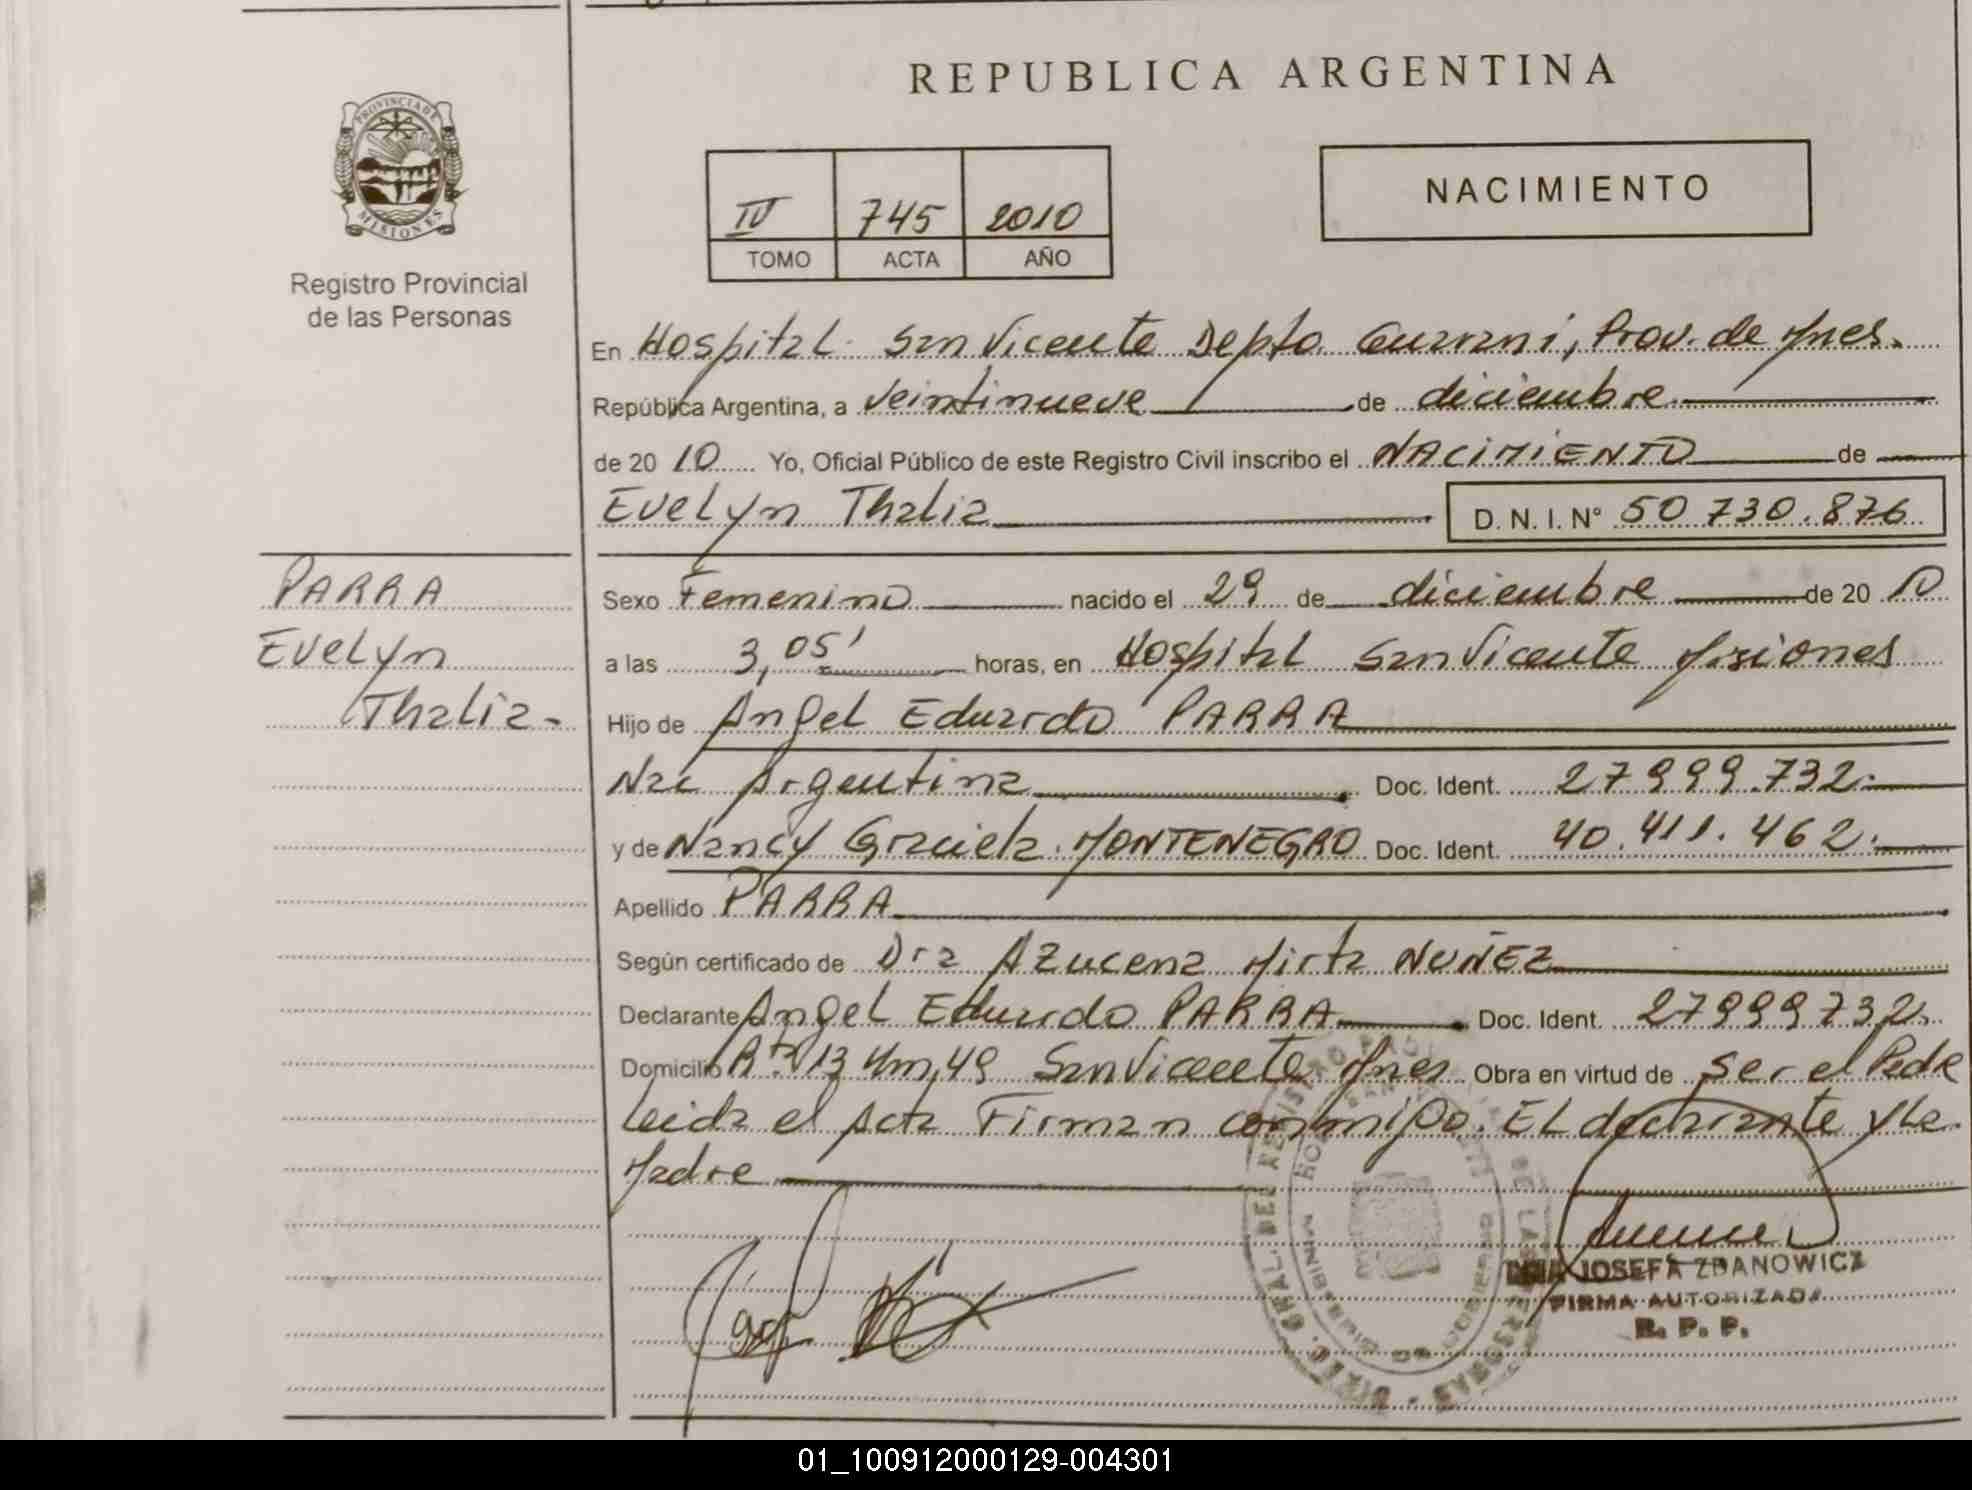 REPUBLICA ARGENTINA
PROVINCIA DE
MISIONES
Registro Provincial
de las Personas
IV 745 2010
TOMO ACTA AÑO
NACIMIENTO
En Hospital San Vicente Depto Guarani, Prov. de Mnes.
República Argentina, a veintinueve de diciembre
de 2010 Yo, Oficial Público de este Registro Civil inscribo el NACIMIENTO de
Evelyn Thalia D. N. I. N° 50 730.876
PARRA
Evelyn
Thalia-
Sexo Femenino nacido el 29 de diciembre de 2010
a las 3,05' horas, en Hospital San Vicente Misiones
Hijo de Angel Eduardo PARRA
Nac Argentina Doc. Ident. 27999.732.
y de Nancy Graciela MONTENEGRO Doc. Ident. 40.411.462.
Apellido PARRA
Según certificado de Dra Azucena Mirta NUÑEZ
Declarante Angel Eduardo PARRA Doc. Ident. 27999732.
Domicilio Rta 13 Km,49 San Vicente Mnes Obra en virtud de ser el Padre
Leida el Acta Firman conmigo. EL declarante y la
Madre
JOSEFA ZDANOWICZ
FIRMA AUTORIZADA
R. P. P.
01_100912000129-004301